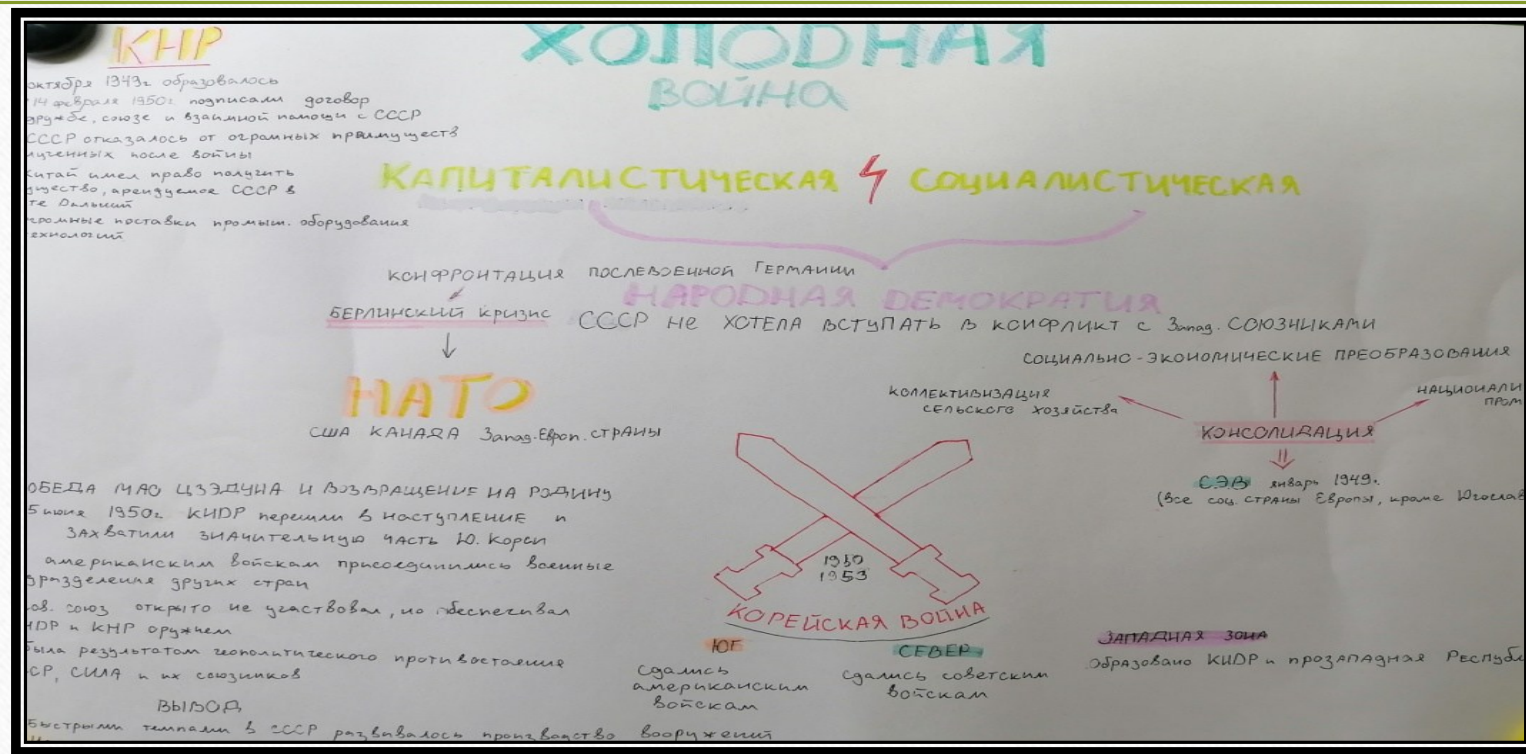 КНР
октября 1949г образовалось
14 февраля 1950г. подписали договор
дружбе, союзе и взаимной помощи с СССР
СССР отказалось от огромных преимуществ
лученных после войны
Китай имел право получить
ущество, арендуемое СССР в
те Дальний
громные поставки промыш. оборудования
ехнологий
ХОЛОДНАЯ
ВОЙНА
КАПИТАЛИСТИЧЕСКАЯ СОЦИАЛИСТИЧЕСКАЯ
КОНФРОНТАЦИЯ ПОСЛЕВОЕННОЙ ГЕРМАНИИ
НАРОДНАЯ ДЕМОКРАТИЯ
БЕРЛИНСКИЙ КРИЗИС
СССР НЕ ХОТЕЛА ВСТУПАТЬ В КОНФЛИКТ С Запад. СОЮЗНИКАМИ
НАТО
США КАНАДА Запад.Европ. СТРАНЫ
СОЦИАЛЬНО-ЭКОНОМИЧЕСКИЕ ПРЕОБРАЗОВАНИЯ
КОЛЛЕКТИВИЗАЦИЯ
СЕЛЬСКОГО ХОЗЯЙСТВА
НАЦИОНАЛИ
ПРОМ
КОНСОЛИДАЦИЯ
СЭВ январь 1949г.
(Все соц. страны Европы, кроме Югослав
ОБЕДА МАО ЦЗЭДУНА И ВОЗВРАЩЕНИЕ НА РОДИНУ
5 июня 1950г. КНДР перешли в НАСТУПЛЕНИЕ и
ЗАХВАТИЛИ ЗНАЧИТЕЛЬНУЮ ЧАСТЬ Ю. Кореи
американским войскам присоединились военные
дразделения других стран
ов. союз открыто не участвовал, но обеспечивал
НДР и КНР оружием
была результатом геополитического противостояния
СР, США и их союзников
ВЫВОД
Быстрыми темпами в СССР развивалось производство вооружений
1950
1953
КОРЕЙСКАЯ ВОЙНА
ЮГ
Сдались
американским
войскам
СЕВЕР
Сдались советским
войскам
ЗАПАДНАЯ ЗОНА
образовано КНДР и прозападная Республ